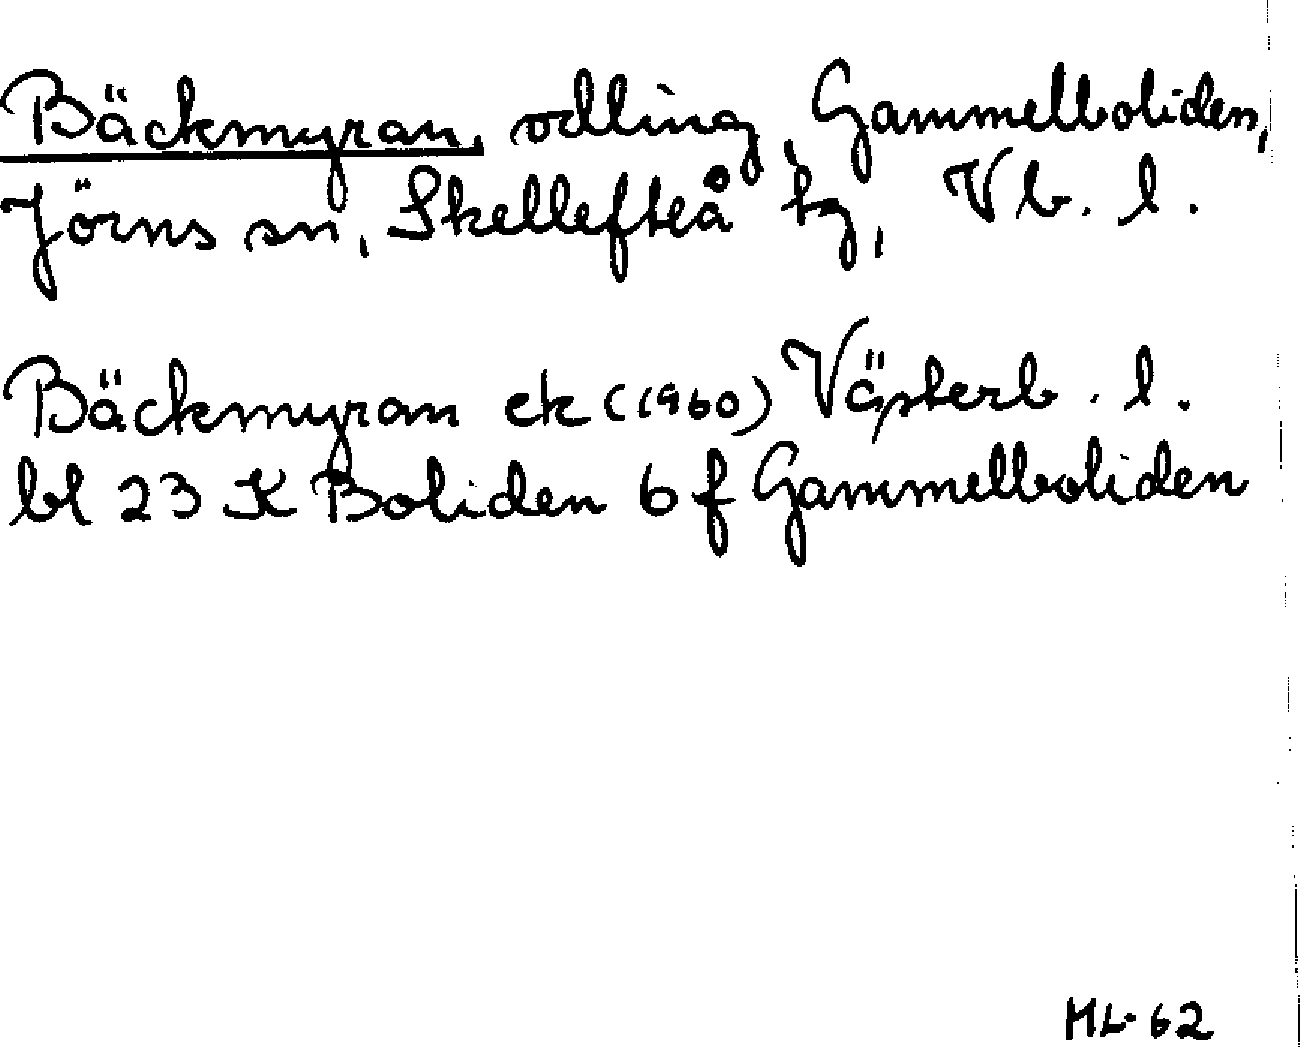 Bäckmyran, odling, Gammelboliden,
Jörns sn, Skellefteå tg, Vb. l.
Bäckmyran ek (1960) Västerb. l.
bl 23 K Boliden 6 f Gammelboliden
ML-62